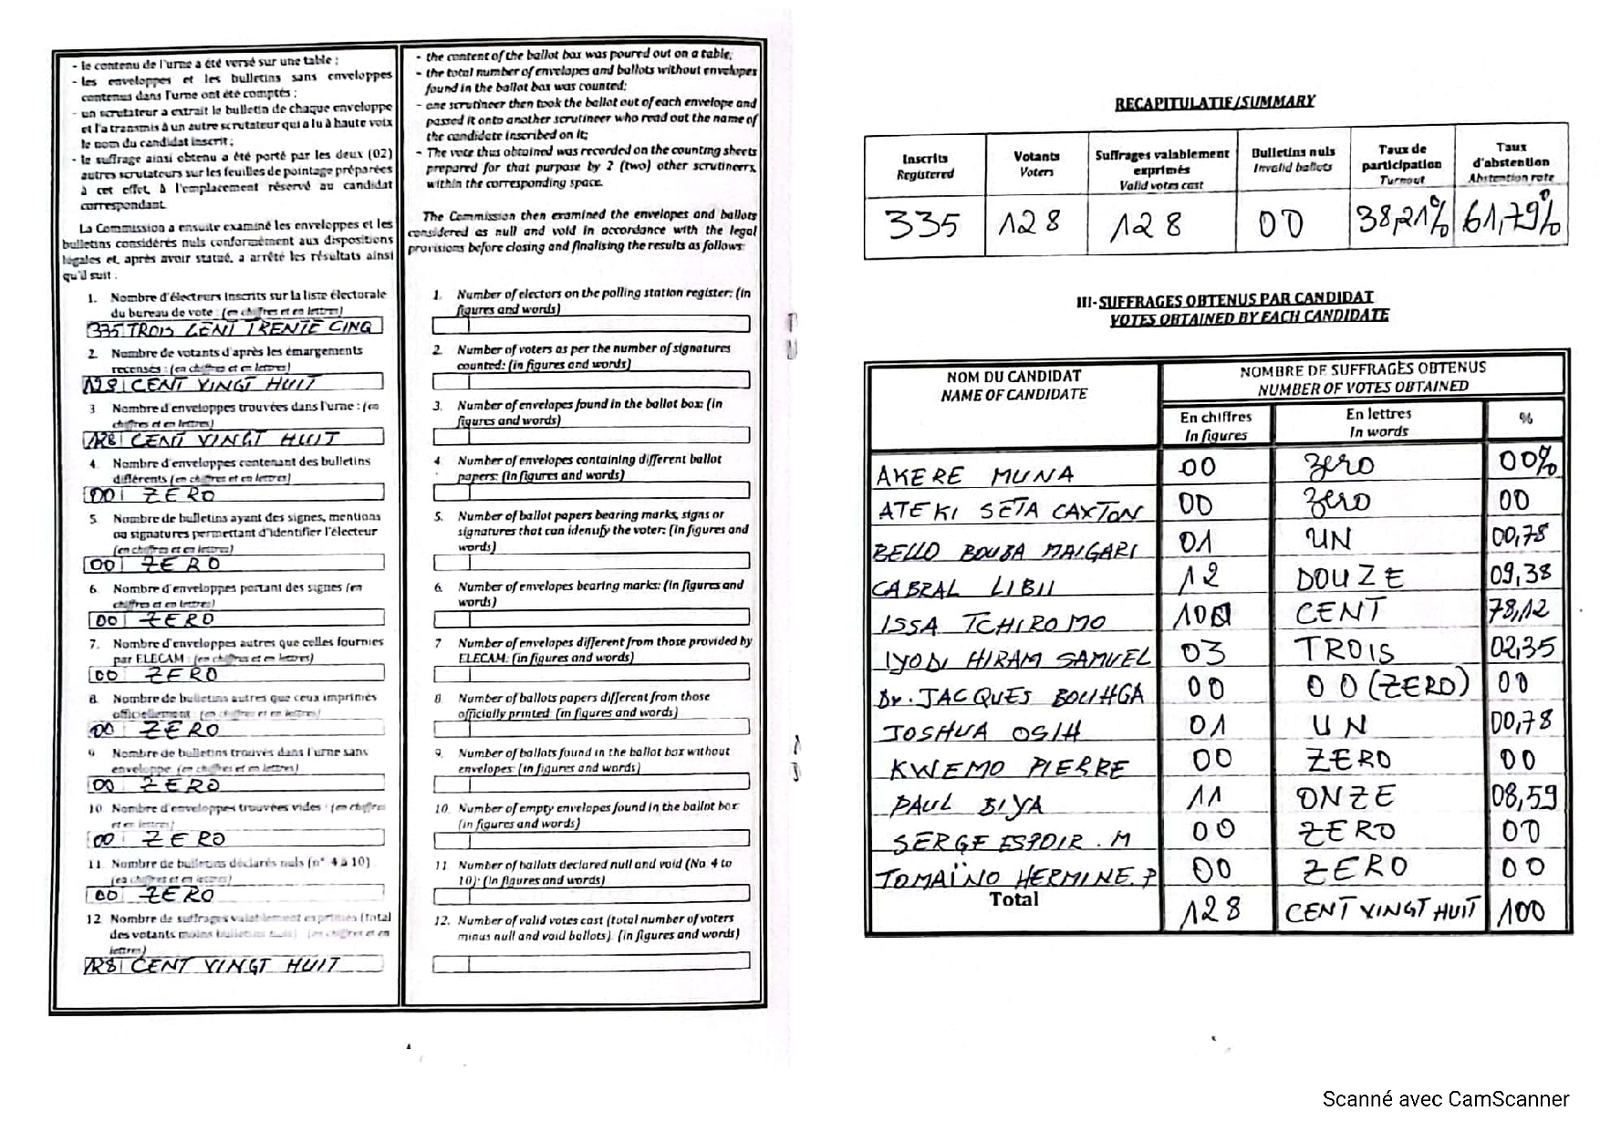 - le contenu de l'urne a été versé sur une table ;
- les enveloppes et les bulletins sans enveloppes
contenus dans l'urne ont été comptés ;
- un scrutateur a extrait le bulletin de chaque enveloppe
et l'a transmis à un autre scrutateur qui a lu à haute voix
le nom du candidat inscrit ;
- le suffrage ainsi obtenu a été porté par les deux (02)
autres scrutateurs sur les feuilles de pointage préparées
à cet effet, à l'emplacement réservé au candidat
correspondant.
La Commission a ensuite examiné les enveloppes et les
bulletins considérés nuls conformément aux dispositions
légales et, après avoir statué, a arrêté les résultats ainsi
qu'il suit :
1. Nombre d'électeurs inscrits sur la liste électorale
du bureau de vote : (en chiffres et en lettres)
335 TROIS CENT TRENTE CINQ
2. Nombre de votants d'après les émargements
recensés : (en chiffres et en lettres)
128 CENT VINGT HUIT
3. Nombre d'enveloppes trouvées dans l'urne : (en
chiffres et en lettres)
128 CENT VINGT HUIT
4. Nombre d'enveloppes contenant des bulletins
différents (en chiffres et en lettres)
00 ZERO
5. Nombre de bulletins ayant des signes, mentions
ou signatures permettant d'identifier l'électeur
(en chiffres et en lettres)
00 ZERO
6. Nombre d'enveloppes portant des signes (en
chiffres et en lettres)
00 ZERO
7. Nombre d'enveloppes autres que celles fournies
par ELECAM : (en chiffres et en lettres)
00 ZERO
8. Nombre de bulletins autres que ceux imprimés
officiellement (en chiffres et en lettres)
00 ZERO
9. Nombre de bulletins trouvés dans l'urne sans
enveloppe (en chiffres et en lettres)
00 ZERO
10. Nombre d'enveloppes trouvées vides : (en chiffres
et en lettres)
00 ZERO
11. Nombre de bulletins déclarés nuls (n° 4 à 10)
(en chiffres et en lettres)
00 ZERO
12 Nombre de suffrages valablement exprimés (total
des votants moins bulletins nuls) (en chiffres et en
lettres)
128 CENT VINGT HUIT
- the content of the ballot box was poured out on a table;
- the total number of envelopes and ballots without envelopes
found in the ballot box was counted;
- one scrutineer then took the ballot out of each envelope and
passed it onto another scrutineer who read out the name of
the candidate inscribed on it;
- The vote thus obtained was recorded on the counting sheets
prepared for that purpose by 2 (two) other scrutineers,
within the corresponding space.
The Commission then examined the envelopes and ballots
considered as null and void in accordance with the legal
provisions before closing and finalising the results as follows:
1. Number of electors on the polling station register: (in
figures and words)
2. Number of voters as per the number of signatures
counted: (in figures and words)
3. Number of envelopes found in the ballot box: (in
figures and words)
4. Number of envelopes containing different ballot
papers: (in figures and words)
5. Number of ballot papers bearing marks, signs or
signatures that can identify the voter: (in figures and
words)
6. Number of envelopes bearing marks: (in figures and
words)
7 Number of envelopes different from those provided by
ELECAM: (in figures and words)
8 Number of ballots papers different from those
officially printed: (in figures and words)
9. Number of ballots found in the ballot box without
envelopes: (in figures and words)
10. Number of empty envelopes found in the ballot box:
(in figures and words)
11. Number of ballots declared null and void (No. 4 to
10): (in figures and words)
12. Number of valid votes cast (total number of voters
minus null and void ballots). (in figures and words)
RECAPITULATIF/SUMMARY
Inscrits Registered | Votants Voters | Suffrages valablement exprimés Valid votes cast | Bulletins nuls Invalid ballots | Taux de participation Turnout | Taux d'abstention Abstention rate
335 128 128 00 38,21% 61,79%
III- SUFFRAGES OBTENUS PAR CANDIDAT
VOTES OBTAINED BY EACH CANDIDATE
NOM DU CANDIDAT NOMBRE DE SUFFRAGES OBTENUS
NAME OF CANDIDATE NUMBER OF VOTES OBTAINED
En chiffres En lettres %
In figures In words
AKERE MUNA 00 Zero 00%
ATEKI SETA CAXTON 00 Zero 00
BELLO BOUBA MAIGARI 01 UN 00,78
CABRAL LIBII 12 DOUZE 09,38
ISSA TCHIROMO 100 CENT 78,12
IYODI HIRAM SAMUEL 03 TROIS 02,35
Dr. JACQUES BOUHGA 00 00 (ZERO) 00
JOSHUA OSIH 01 UN 00,78
KWEMO PIERRE 00 ZERO 00
PAUL BIYA 11 ONZE 08,59
SERGE ESPOIR . M 00 ZERO 00
TOMAÏNO HERMINE. P 00 ZERO 00
Total 128 CENT VINGT HUIT 100
Scanné avec CamScanner